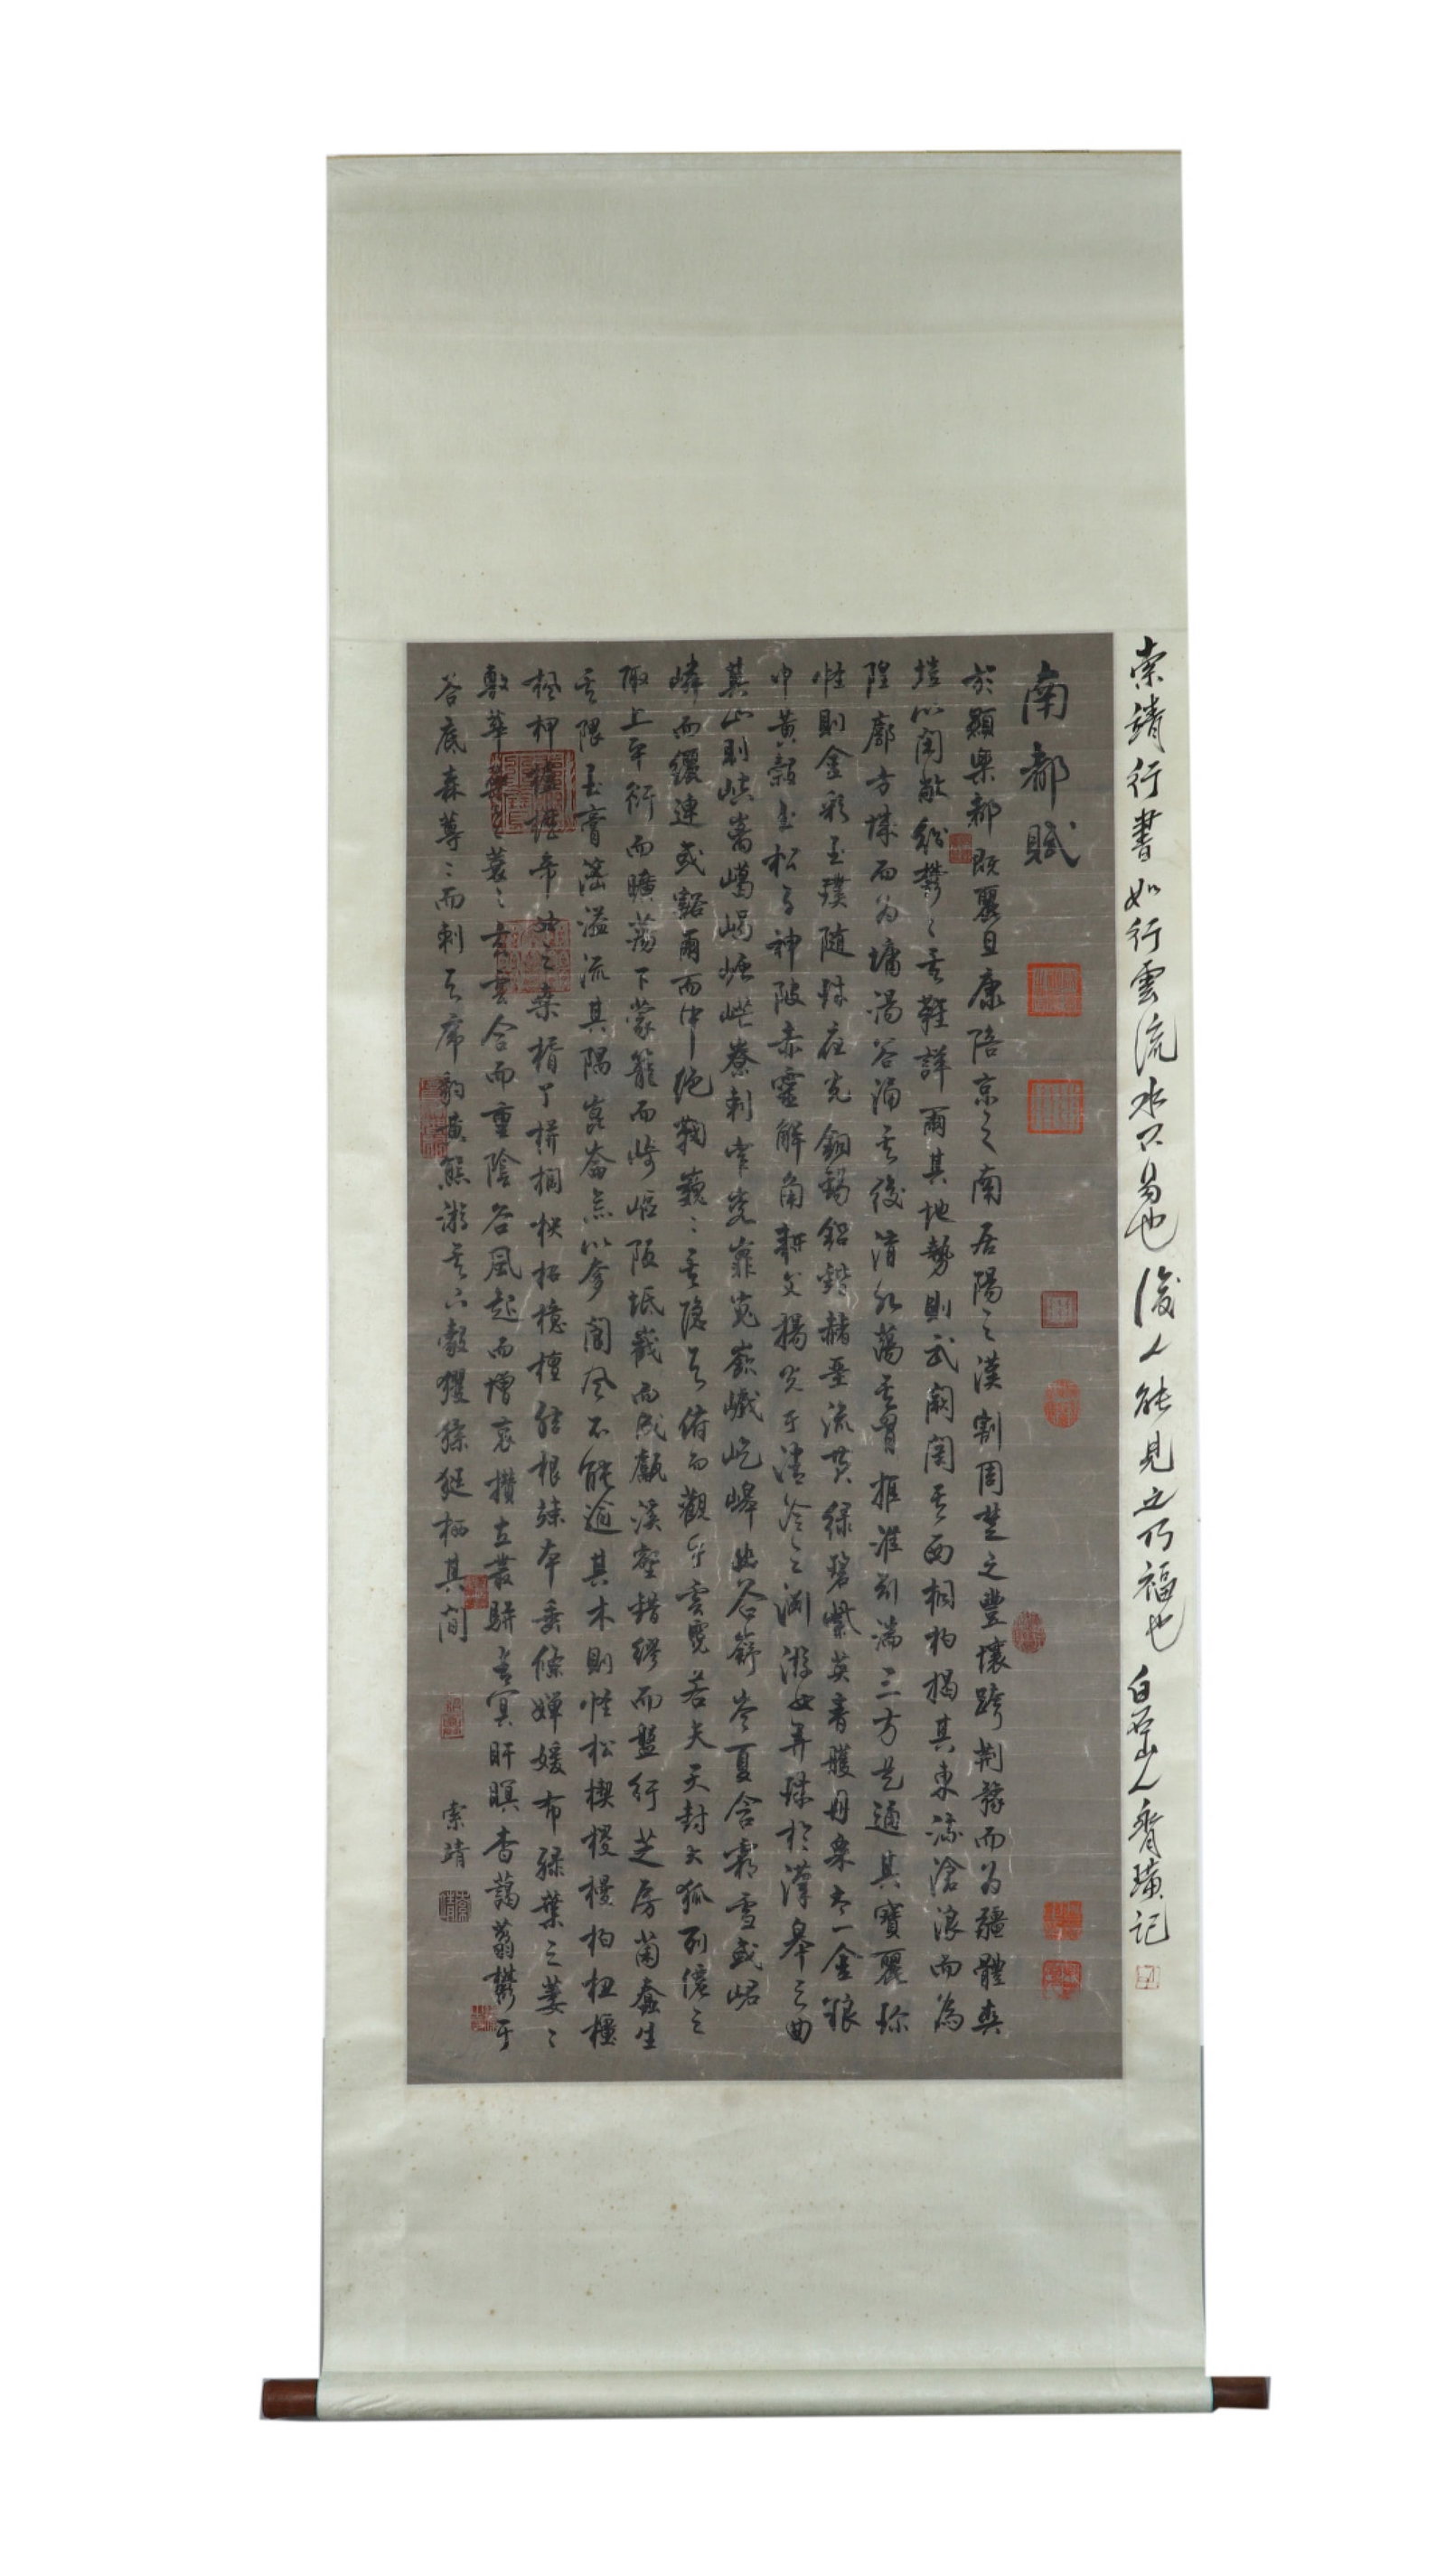 索靖行書如行雲流水不易也後人能見之乃福也白石山人齊璜記
南都賦
於顯樂都既麗且康陪京之南居陽之漢割周楚之豐壤跨荊豫而為疆體爽
塏以閑敞紛欝〻其難詳爾其地勢則武闕關其西桐柏揭其東流滄浪而為
隍廓方城而為墉湯谷涌其後淯水蕩其胷推淮引湍三方是通其寶麗珍
恠則金彩玉璞隨珠夜光銅錫鉛鍇赭堊流黃綠碧紫英青雘丹粟太一金粮
中黃瑴玉松子神陂赤靈解角耕父揚光于清泠之淵游女弄珠於漢皋之曲
其山則嵜嶱嵑寮剌嵬巇屹幽谷岑夏含霜雪或峮
嶙而纚連或豁爾而中絕鞠巍〻其隱天俯而觀乎雲霓若夫天封大狐列僊之
陬上平衍而曠蕩下蒙籠而崎嶇阪坻嶻而成甗溪壑錯繆而盤紆芝房菌蠢生
其隈玉膏滵溢流其隅崑崙無以奓閬風不能逾其木則檉松楔㮨槾柏杻橿
楓柙櫨櫪帝女之桑楈枒栟櫚柍柘檍檀結根竦本垂條嬋媛布綠葉之萋〻
敷華蘂之蓑〻玄雲合而重陰谷風起而增哀攢立叢駢青冥盱瞑杳藹蓊鬱于
谷底森蓴〻而刺天虎豹黃熊游其下豰玃猱狿栖其間
索靖